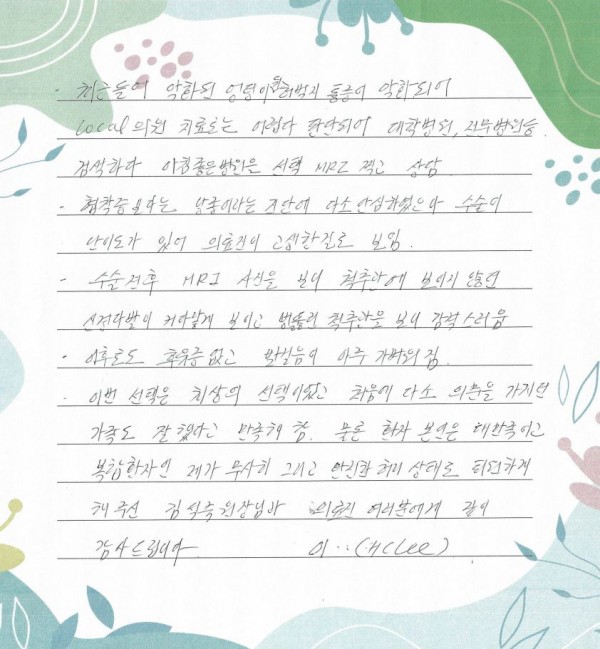 · 최근들어 악화된 엉덩이 허벅지 통증이 악화되어
local 의원 치료로는 어렵다 판단되어 대학병원, 전문병원을
검색하다 이춘택병원을 선택 MRI 찍고 상담
· 협착증 보다는 양호이라는 진단에 다소 안심하였으나 수술이
난이도가 있어 의료진이 고생한걸로 보임.
· 수술전후 MRI 사진을 보니 척추안에 보이지 않던
신경다발이 커다랗게 보이고 뻥뚫린 척추관을 보니 감격스러움
· 이후로도 후유증없고 발걸음이 아주 가벼워짐.
· 이번 선택은 최상의 선택이었고 처음에 다소 의문을 가지던
가족도 잘 했다고 만족해 함. 물론 환자 본인은 대만족이고
복합환자인 제가 무사히 그리고 안전한 허리 상태로 퇴원하게
해주신 원장님과 의료진 여러분에게 깊이
감사드립니다 이‥(HCLee)